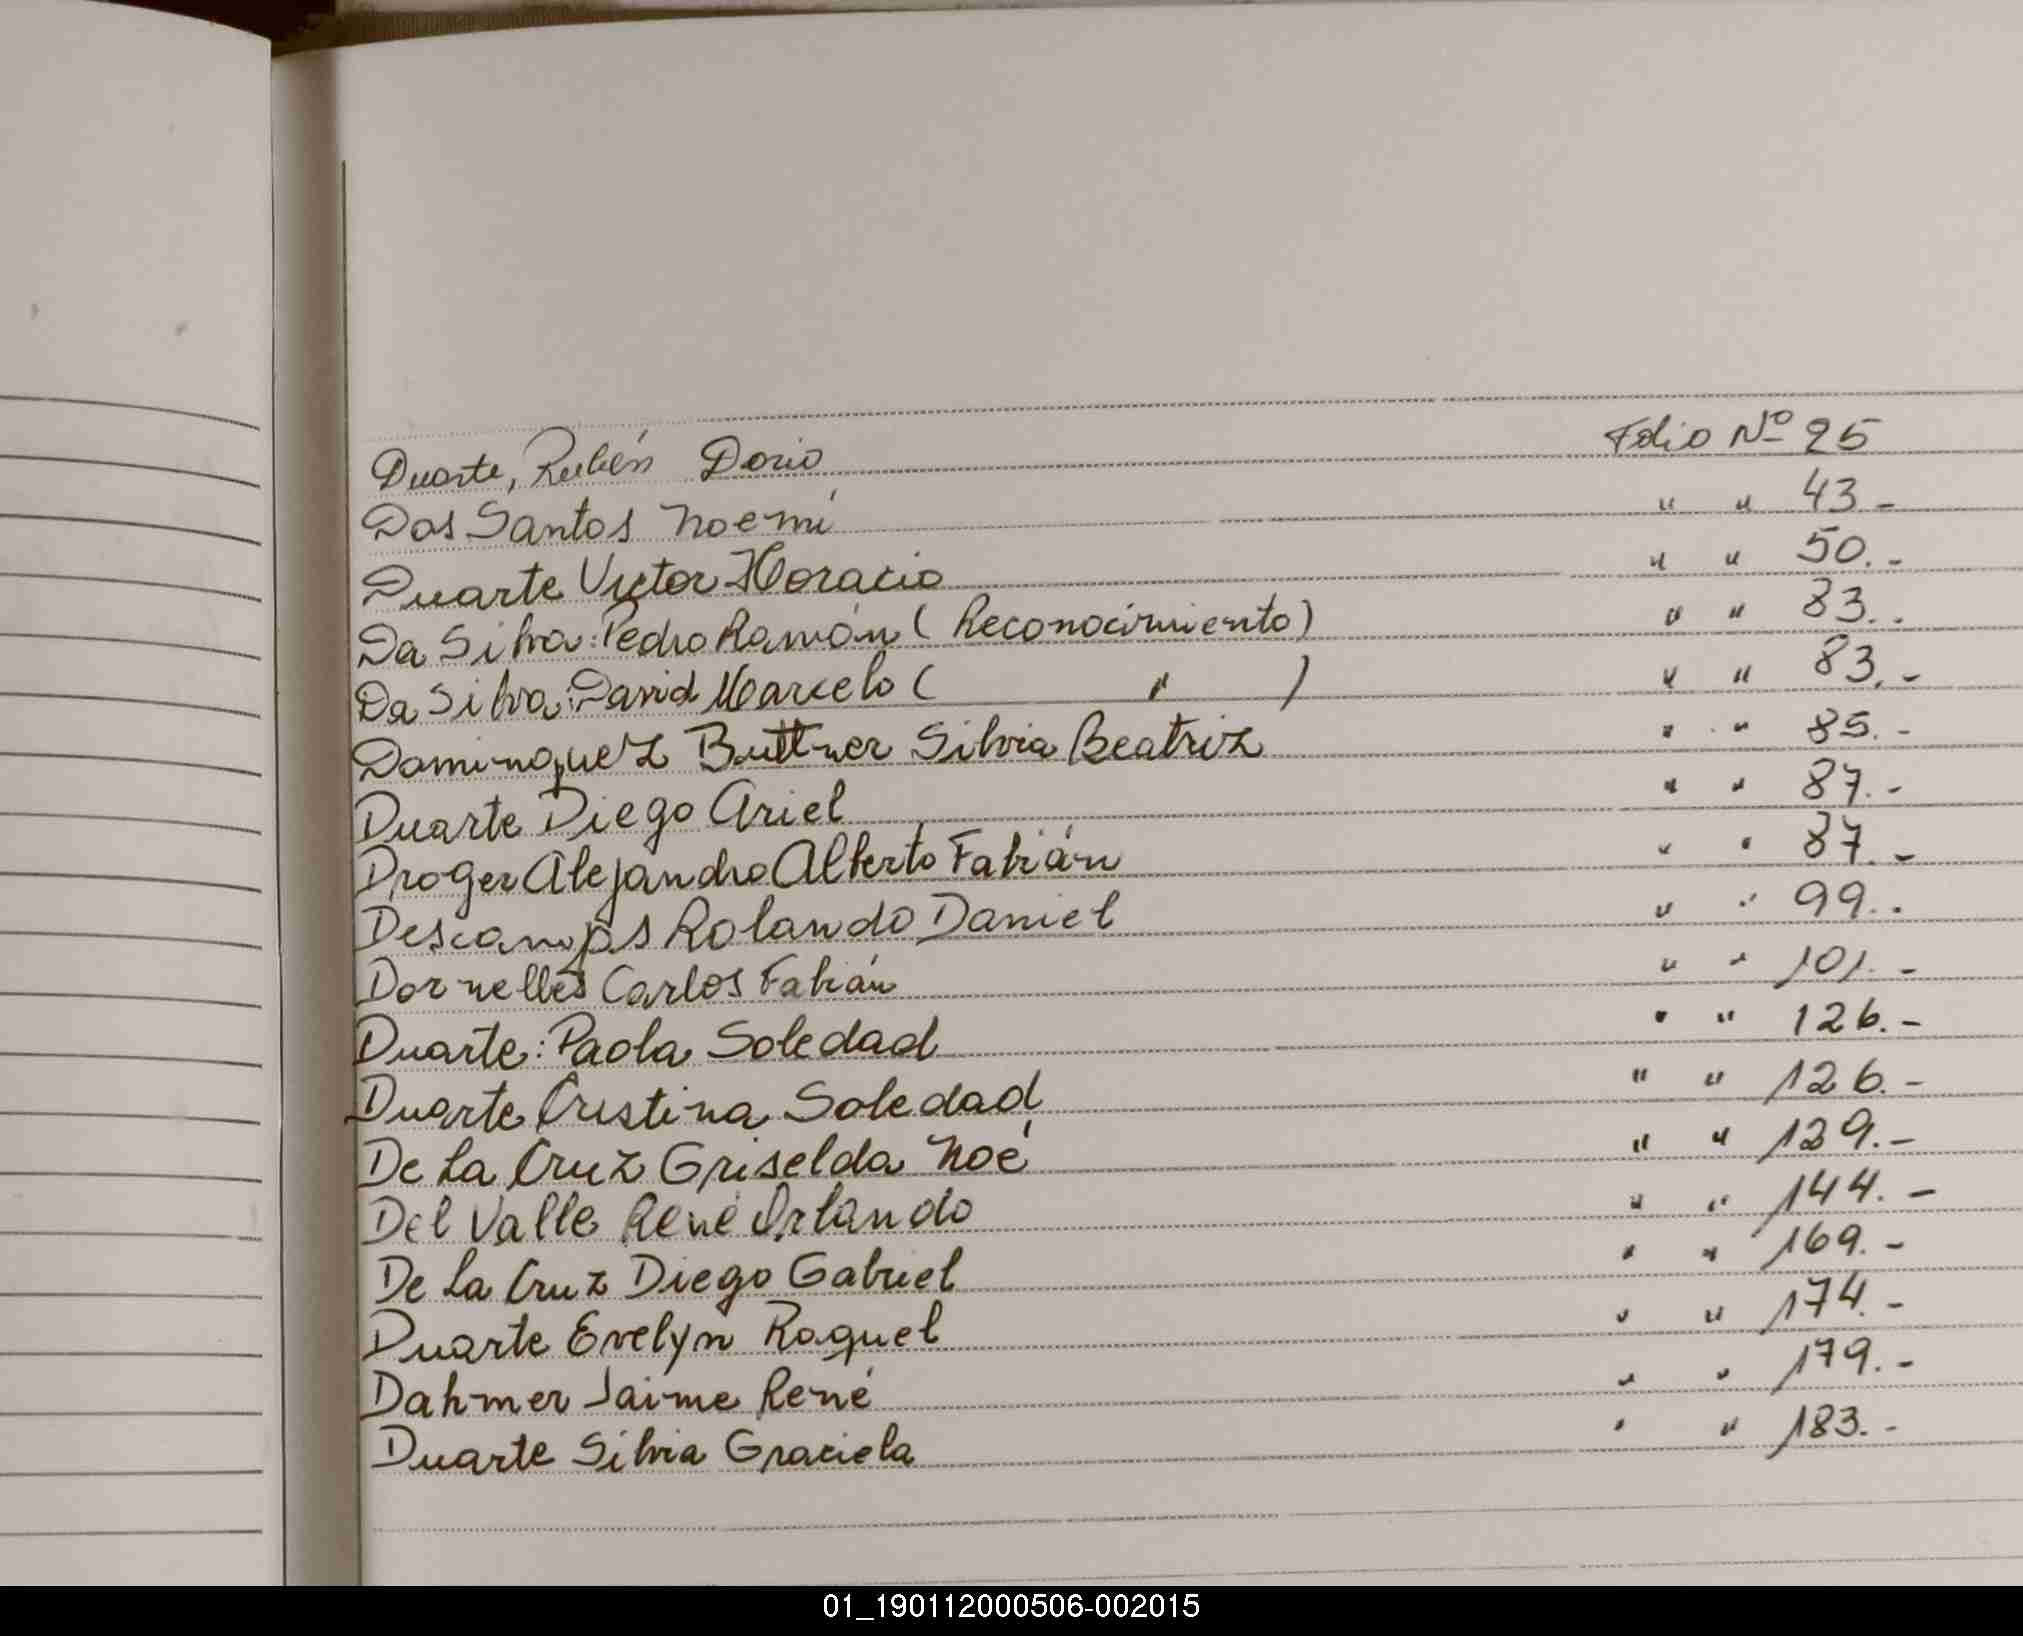 Duarte, Rubén Dorio Folio Nº 25
Dos Santos Noemí " " 43.-
Duarte Victor Horacio " " 50.-
Da Silva: Pedro Ramón ( Reconocimiento) " " 83..
Da Silva: David Marcelo ( " ) " " 83.-
Dominguez Buttner Silvia Beatriz " " 85.-
Duarte Diego Ariel " " 87.-
Droger Alejandro Alberto Fabián " " 87.-
Descamps Rolando Daniel " " 99..
Dornelles Carlos Fabián " " 101.-
Duarte: Paola Soledad " " 126.-
Duarte Cristina Soledad " " 126.-
De La Cruz Griselda Noé " " 129.-
Del Valle René Orlando " " 144.-
De La Cruz Diego Gabriel " " 169.-
Duarte Evelyn Raquel " " 174.-
Dahmer Jaime René " " 179.-
Duarte Silvia Graciela " " 183.-
01_190112000506-002015